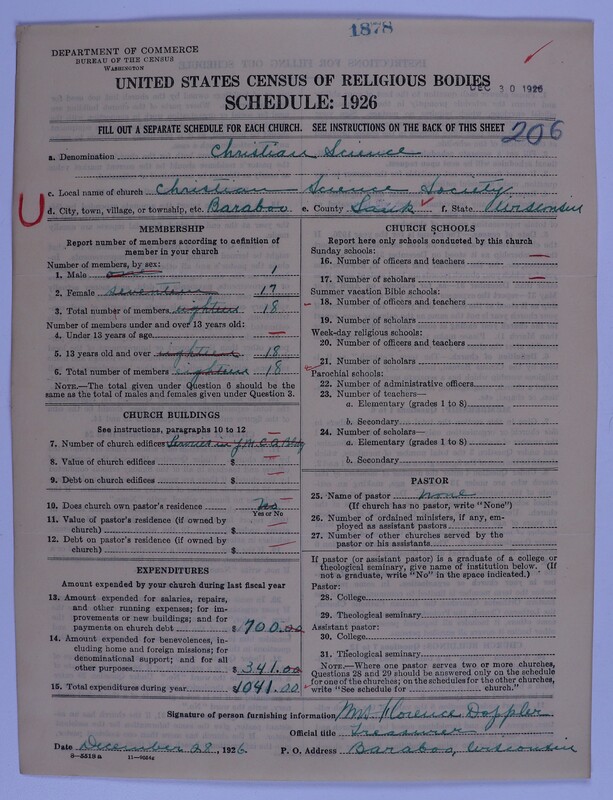 1878
DEPARTMENT OF COMMERCE
BUREAU OF THE CENSUS
WASHINGTON
UNITED STATES CENSUS OF RELIGIOUS BODIES
DEC 30 1926
SCHEDULE: 1926
FILL OUT A SEPARATE SCHEDULE FOR EACH CHURCH. SEE INSTRUCTIONS ON THE BACK OF THIS SHEET
206
a. Denomination Christian Science
c. Local name of church Christian Science Society
d. City, town, village, or township, etc. Baraboo e. County Sauk f. State Wisconsin
MEMBERSHIP
Report number of members according to definition of
member in your church
Number of members, by sex:
1. Male one 1
2. Female seventeen 17
3. Total number of members eighteen 18
Number of members under and over 13 years old:
4. Under 13 years of age
5. 13 years old and over eighteen 18
6. Total number of members eighteen 18
NOTE.—The total given under Question 6 should be the
same as the total of males and females given under Question 3.
CHURCH BUILDINGS
See instructions, paragraphs 10 to 12
7. Number of church edifices Services in Y.M.C.A. Bldg
8. Value of church edifices $
9. Debt on church edifices $
10. Does church own pastor's residence No
Yes or No
11. Value of pastor's residence (if owned by
church) $
12. Debt on pastor's residence (if owned by
church) $
EXPENDITURES
Amount expended by your church during last fiscal year
13. Amount expended for salaries, repairs,
and other running expenses; for im-
provements or new buildings; and for
payments on church debt $ 700.00
14. Amount expended for benevolences, in-
cluding home and foreign missions; for
denominational support; and for all
other purposes $ 341.00
15. Total expenditures during year $1041.00
CHURCH SCHOOLS
Report here only schools conducted by this church
Sunday schools:
16. Number of officers and teachers
17. Number of scholars
Summer vacation Bible schools:
18. Number of officers and teachers
19. Number of scholars
Week-day religious schools:
20. Number of officers and teachers
21. Number of scholars
Parochial schools:
22. Number of administrative officers
23. Number of teachers—
a. Elementary (grades 1 to 8)
b. Secondary
24. Number of scholars—
a. Elementary (grades 1 to 8)
b. Secondary
PASTOR
25. Name of pastor none
(If church has no pastor, write "None")
26. Number of ordained ministers, if any, em-
ployed as assistant pastors
27. Number of other churches served by the
pastor or his assistants
If pastor (or assistant pastor) is a graduate of a college or
theological seminary, give name of institution below. (If
not a graduate, write "No" in the space indicated.)
Pastor:
28. College
29. Theological seminary
Assistant pastor:
30. College
31. Theological seminary
NOTE.—Where one pastor serves two or more churches,
Questions 28 and 29 should be answered only on the schedule
for one of the churches; on the schedules for the other churches,
write "See schedule for church."
Signature of person furnishing information Mrs. Florence Doppler
Official title Treasurer
Date December 28, 1926 P. O. Address Baraboo, Wisconsin